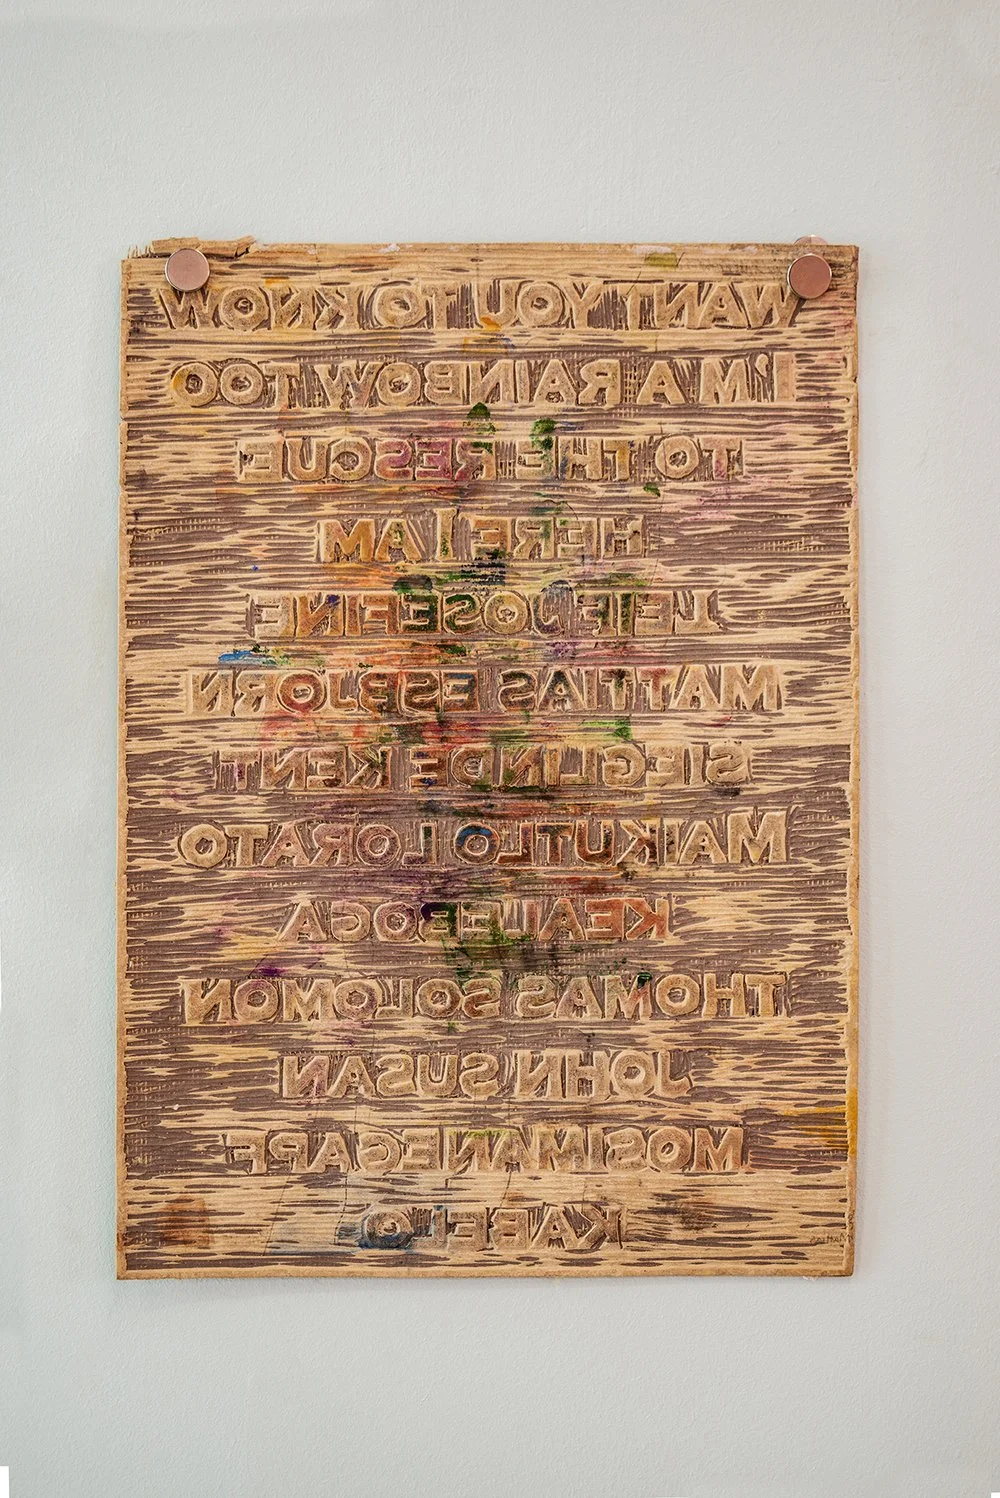 WANT YOU TO KNOW
I'M A RAINBOW TOO
TO THE RESCUE
HERE I AM
LEIF JOSEFINE
MATTIAS ESBJORN
SIEGLINDE KENT
MAIKUTLO LORATO
KEALEBOGA
THOMAS SOLOMON
JOHN SUSAN
MOSIMANEGAPE
KABELO